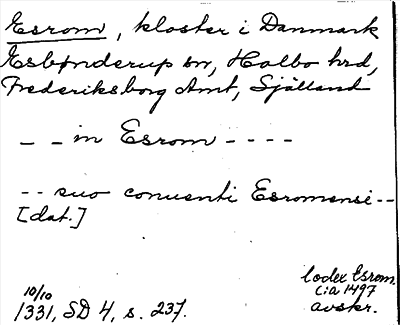 Esrom, kloster i Danmark
Esbønderup sn, Holbo hrd,
Frederiksborg Amt, Sjælland
_ _ in Esrom - - - -
-- suo conuenti Esromensi --
[dat.]
10/10
1331, SD 4, s. 237.
Codex Esrom.
Cia 1497
avskr.